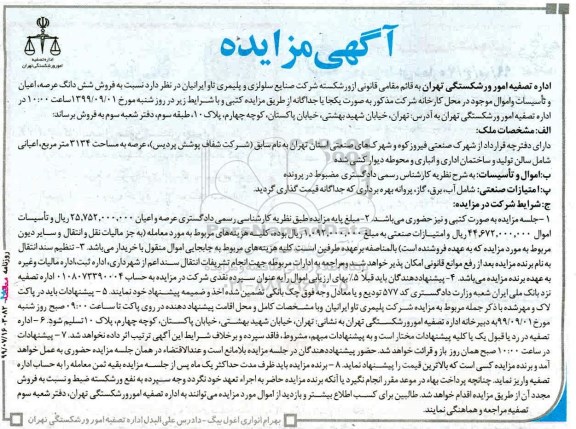 آگهی مزایده
اداره تصفیه
امور ورشکستگی تهران
اداره تصفیه امور ورشکستگی تهران به قائم مقامی قانونی از ورشکسته شرکت صنایع سلولزی و پلیمری تاو ایرانیان در نظر دارد نسبت به فروش شش دانگ عرصه، اعیان
و تأسیسات و اموال موجود در محل کارخانه شرکت مذکور به صورت یکجا یا جداگانه از طریق مزایده کتبی و با شرایط زیر در روز شنبه مورخ ۱۳۹۹/۰۹/۰۱ ساعت ۱۰:۰۰ در
اداره تصفیه امور ورشکستگی تهران به آدرس: تهران، خیابان شهید بهشتی، خیابان پاکستان، کوچه چهارم، پلاک ۱۰، طبقه سوم، دفتر شعبه سوم به فروش برساند:
الف: مشخصات ملک:
دارای دفترچه قرارداد از شهرک صنعتی فیروزکوه و شهرک‌های صنعتی استان تهران به نام سابق (شرکت شفاف پوشش پردیس)، عرصه به مساحت ۳۱۳۴ متر مربع، اعیانی
شامل سالن تولید و ساختمان اداری و انباری و محوطه دیوار کشی شده
ب: اموال و تأسیسات: به شرح نظریه کارشناس رسمی دادگستری مضبوط در پرونده
پ: امتیازات صنعتی: شامل آب، برق، گاز، پروانه بهره برداری که جداگانه قیمت گذاری گردید.
ج: شرایط شرکت در مزایده:
۱- جلسه مزایده به صورت کتبی و نیز حضوری می‌باشد. ۲- مبلغ پایه مزایده طبق نظریه کارشناسی رسمی دادگستری عرصه و اعیان ۲۵,۷۵۲,۰۰۰,۰۰۰ ریال و تأسیسات
اموال ۴۴,۶۷۳,۰۰۰,۰۰۰ ریال و امتیازات صنعتی به مبلغ ریال بوده، کلیه هزینه‌های مربوط به مورد معامله (به جز مالیات نقل و انتقال و سایر دیون
مربوط به مورد مزایده که به عهده فروشنده است) بالمناصفه بر عهده طرفین است. کلیه هزینه‌های مربوط به جابجایی اموال منقول با خریدار می‌باشد. ۳- تنظیم سند انتقال
به نام برنده مزایده بعد از رفع موانع قانونی امکان پذیر خواهد شد و مراجعه به ادارات مربوطه جهت انجام تشریفات انتقال سند اعم از شهرداری، اداره ثبت، اداره مالیات و غیره
به عهده برنده مزایده می‌باشد. ۴- پیشنهاددهندگان باید قبلا ۵٪ بهای ارزیابی اموال را به عنوان سپرده نقدی شرکت در مزایده به حساب اداره تصفیه
نزد بانک ملی ایران شعبه وزارت دادگستری کد ۵۷۷ تودیع و یا معادل وجه فوق چک بانکی تضمین شده اخذ و ضمیمه پیشنهاد خود نمایند. ۵- پیشنهادات باید در پاکت
لاک و مهر شده با ذکر جمله مربوط به مزایده شرکت پلیمری تاو ایرانیان و با مشخصات کامل و محل اقامت پیشنهاد دهنده در روی پاکت تا ساعت ۰۹:۰۰ صبح روز شنبه
مورخ ۹۹/۰۹/۰۱ به دبیرخانه اداره تصفیه امور ورشکستگی تهران به نشانی: تهران، خیابان شهید بهشتی، خیابان پاکستان، کوچه چهارم، پلاک ۱۰ تسلیم شود. ۶- اداره
تصفیه در رد یا قبول یک یا کلیه پیشنهادات مختار است و به پیشنهادات مبهم، مشروط، فاقد سپرده و بر خلاف شرایط این آگهی ترتیب اثر داده نخواهد شد. ۷- پیشنهادات
در ساعت ۱۰:۰۰ صبح همان روز باز و قرائت خواهد شد. حضور پیشنهاددهندگان در جلسه مزایده بلامانع است و عندالاقتضاء در همان جلسه مزایده حضوری به عمل خواهد
آمد و برنده مزایده کسی است که بالاترین قیمت را پیشنهاد نماید. ۸- برنده مزایده باید ظرف مدت حداکثر یک ماه پس از جلسه مزایده بقیه ثمن معامله را به حساب اداره
تصفیه واریز نماید. چنانچه پرداخت بهاء در موعد مقرر انجام نگیرد یا آنکه برنده مزایده حاضر به اجراء تعهد خود نگردد وجه سپرده به نفع ورشکسته ضبط و نسبت به فروش
مجدد آن از طریق مزایده اقدام خواهد شد. طالبین برای کسب اطلاع بیشتر و بازدید از اموال مورد مزایده می‌توانند به اداره تصفیه امور ورشکستگی تهران، دفتر شعبه سوم
تصفیه مراجعه و هماهنگی نمایند.
بهرام انواری اغول بیگ - دادرس علی البدل اداره تصفیه امور ورشکستگی تهران
روزنامه ۴۰۸۲ ۹۹/۰۷/۱۶